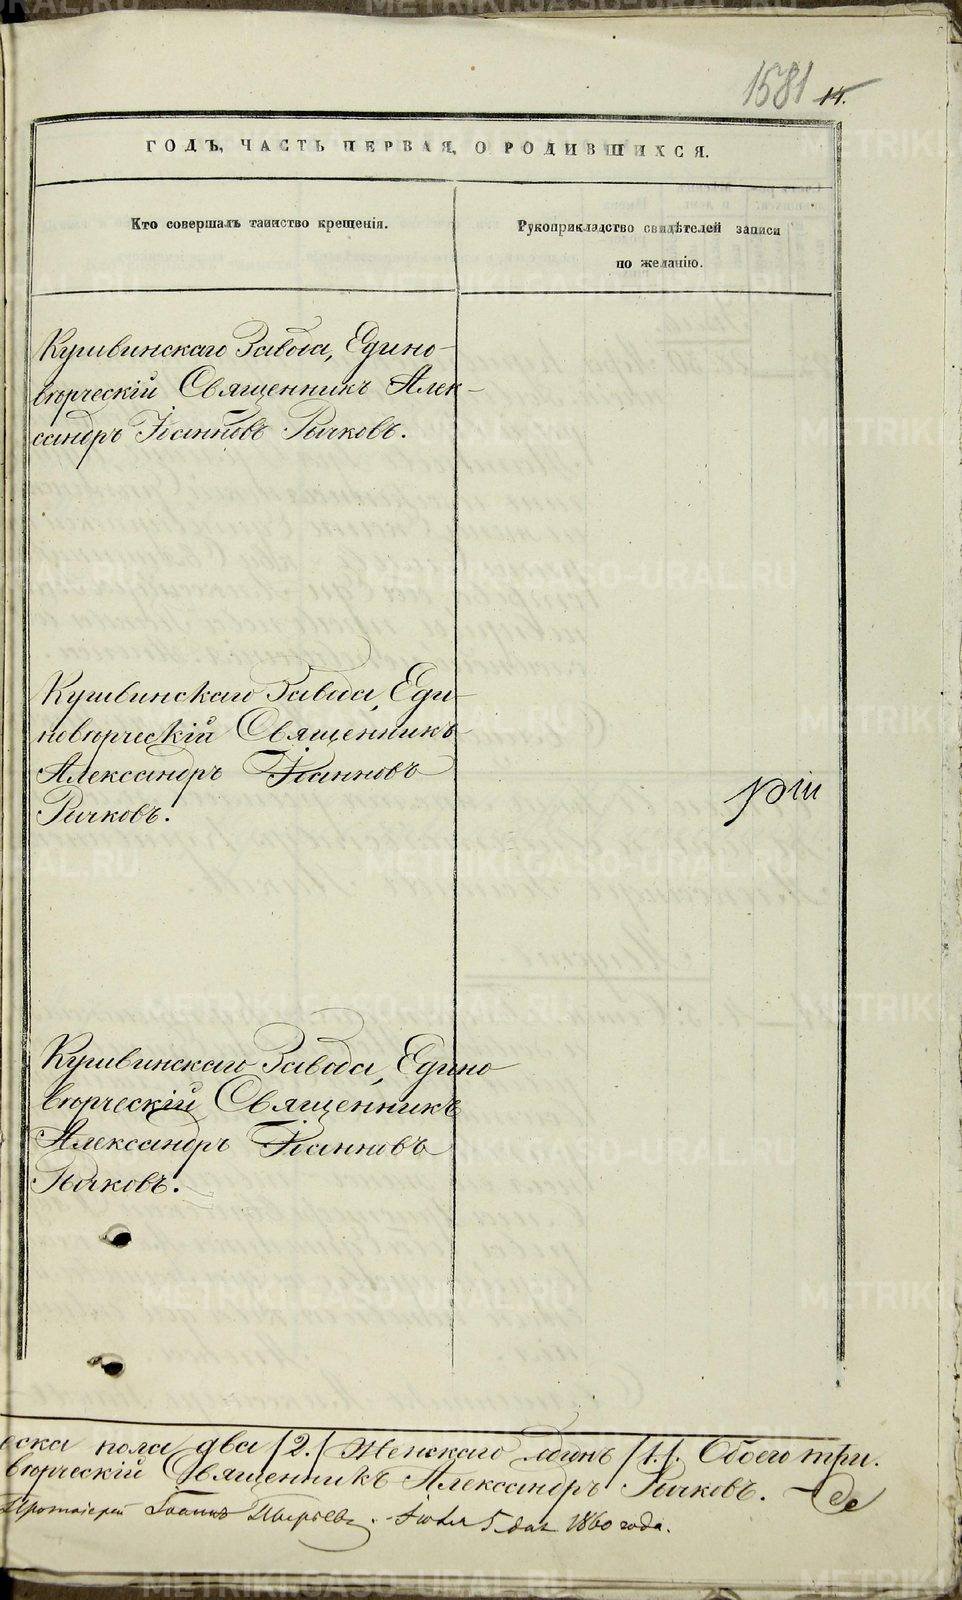 1581 14.
ГОДЪ, ЧАСТЬ ПЕРВАЯ, О РОДИВШИХСЯ.
Кто совершалъ таинство крещенія.
Рукоприкладство свидѣтелей записи
по желанію.
Кушвинскаго Завода, Едино-
вѣрческій Священникъ Алек-
сандръ Іоанновъ Рычковъ.
Кушвинскаго Завода, Еди-
новѣрческій Священникъ
Александръ Іоанновъ
Рычковъ.
Кушвинскаго Завода, Едино
вѣрческій Священникъ
Александръ Іоанновъ
Рычковъ.
еска пола два /2./ Женскаго одинъ /1./. Обоего три.
вѣрческій Священникъ Александръ Рычковъ.
Протоіерей Іоаннъ Іюля 5 дня 1860 года.
METRIKI.GASO-URAL.RU